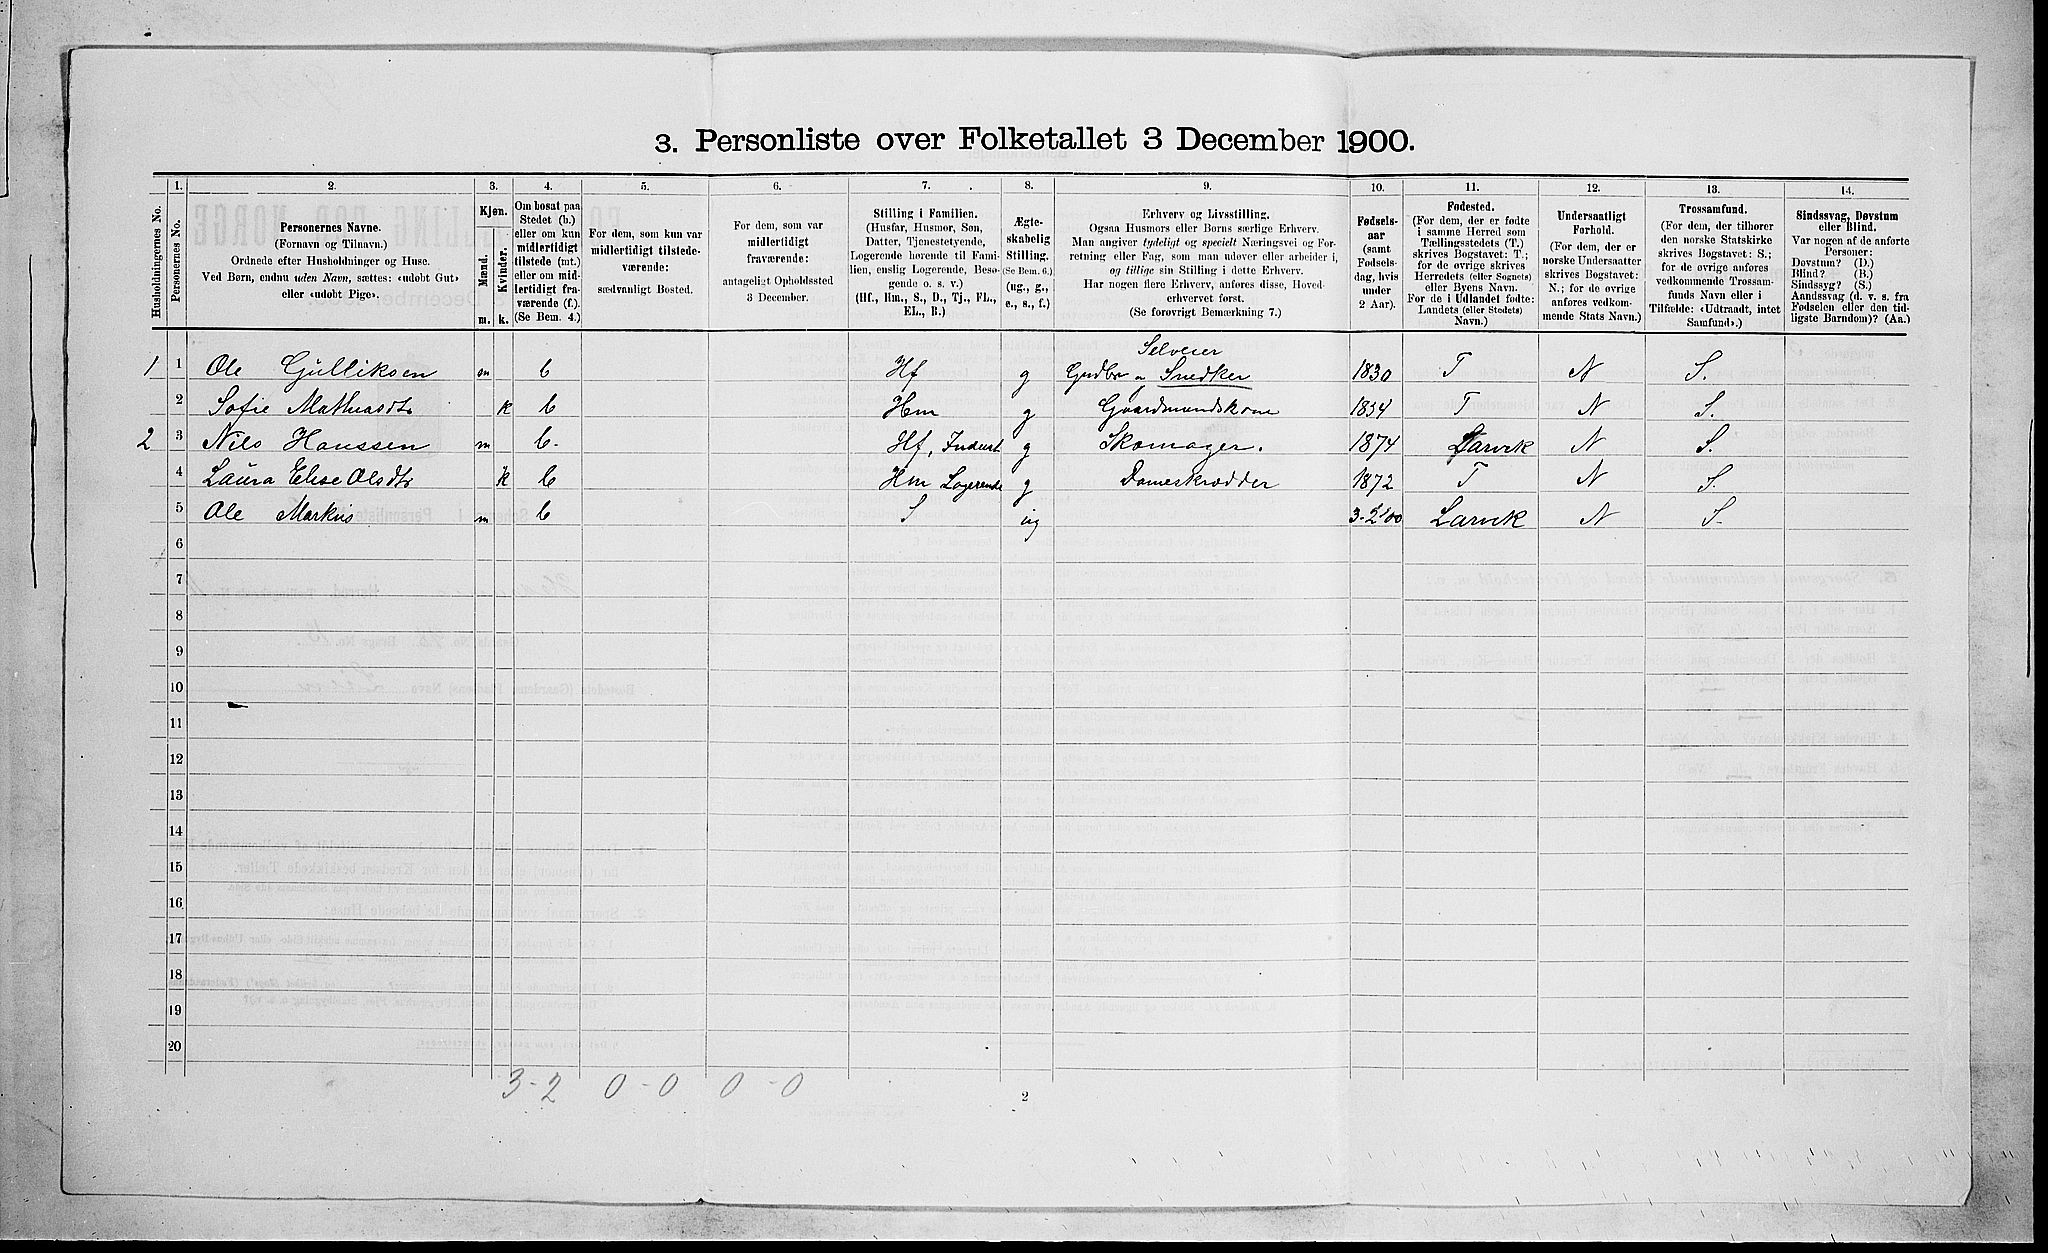 3. Personliste over Folketallet 3 December 1900.
Husholdningernes No.
1.
Personernes No.
2.
Personernes Navne.
(Fornavn og Tilnavn.)
Ordnede efter Husholdninger og Huse.
Ved Børn, endnu uden Navn, sættes: «udøbt Gut»
eller «udøbt Pige».
3.
Kjøn.
Mænd.
Kvinder.
m. k.
4.
Om bosat paa
Stedet (b.)
eller om kun
midlertidigt
tilstede (mt.)
eller om mid-
lertidigt fra-
værende (f.).
(Se Bem. 4.)
5.
For dem, som kun var
midlertidigt tilstede-
værende:
sædvanligt Bosted.
6.
For dem, som var
midlertidigt
fraværende:
antageligt Opholdssted
3 December.
7.
Stilling i Familien.
(Husfar, Husmor, Søn,
Datter, Tjenestetyende,
Logerende hørende til Fami-
lien, enslig Logerende, Besø-
gende o. s. v.)
(Hf., Hm., S., D., Tj., FL.,
EL., B.)
8.
Ægte-
skabelig
Stilling.
(Se Bem. 6.)
(ug., g.,
e., s., f.)
9.
Erhverv og Livsstilling.
Ogsaa Husmors eller Børns særlige Erhverv.
Man angiver tydeligt og specielt Næringsvei og For-
retning eller Fag, som man udøver eller arbeider i,
og tillige sin Stilling i dette Erhverv.
Har nogen flere Erhverv, anføres disse, Hoved-
erhvervet først.
(Se forøvrigt Bemærkning 7.)
10.
Fødsels-
aar
(samt
Fødsels-
dag, hvis
under
2 Aar).
11.
Fødested.
(For dem, der er fødte
i samme Herred som
Tællingsstedets (T.)
skrives Bogstavet: T.;
for de øvrige skrives
Herredets (eller Sognets)
eller Byens Navn.
For de i Udlandet fødte:
Landets (eller Stedets)
Navn.)
12.
Undersaatligt
Forhold.
(For dem, der er
norske Undersaatter
skrives Bogstavet:
N.; for de øvrige
anføres vedkom-
mende Stats Navn.)
13.
Trossamfund.
(For dem, der tilhører
den norske Statskirke
skrives Bogstavet: S.;
for de øvrige anføres
vedkommende Trossam-
funds Navn eller i
Tilfælde: «Udtraadt, intet
Samfund».)
14.
Sindssvag, Døvstum
eller Blind.
Var nogen af de anførte
Personer:
Døvstum? (D.)
Blind? (B.)
Sindssyg? (S.)
Aandssvag (d. v. s. fra
Fødselen eller den tid-
ligste Barndom)? (Aa.)
1 1 Ole Gulliksen m b Hf g Selveier Grdbr. Snedker 1830 T N S.
2 Sofie Mathiasdtr k b Hm g Gaardmandskone 1834 T N S.
2 3 Nils Hanssen m b. Hf, Inderst g Skomager. 1874 Larvik N S.
4 Laura Elise Olsdtr k b Hm Logerende g Dameskrædder 1872 T N S.
5 Ole Markus m b S ug 3-2 00 Larvik N S.
6
7
8
9
10
11
12
13
14
15
16
17
18
19
20
3-2 0-0 0-0
2